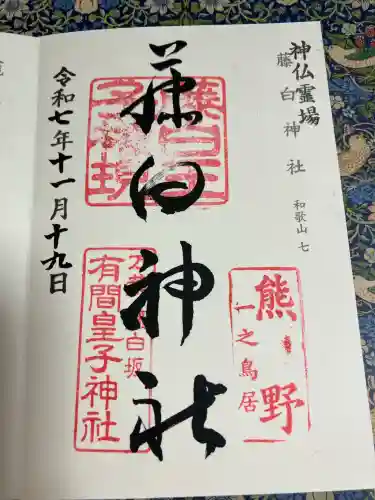 神仏霊場
藤白神社
和歌山 七
熊野
一之鳥居
藤白神社
藤白王
子権現
万
白坂
有間皇子神社
令和七年十一月十九日